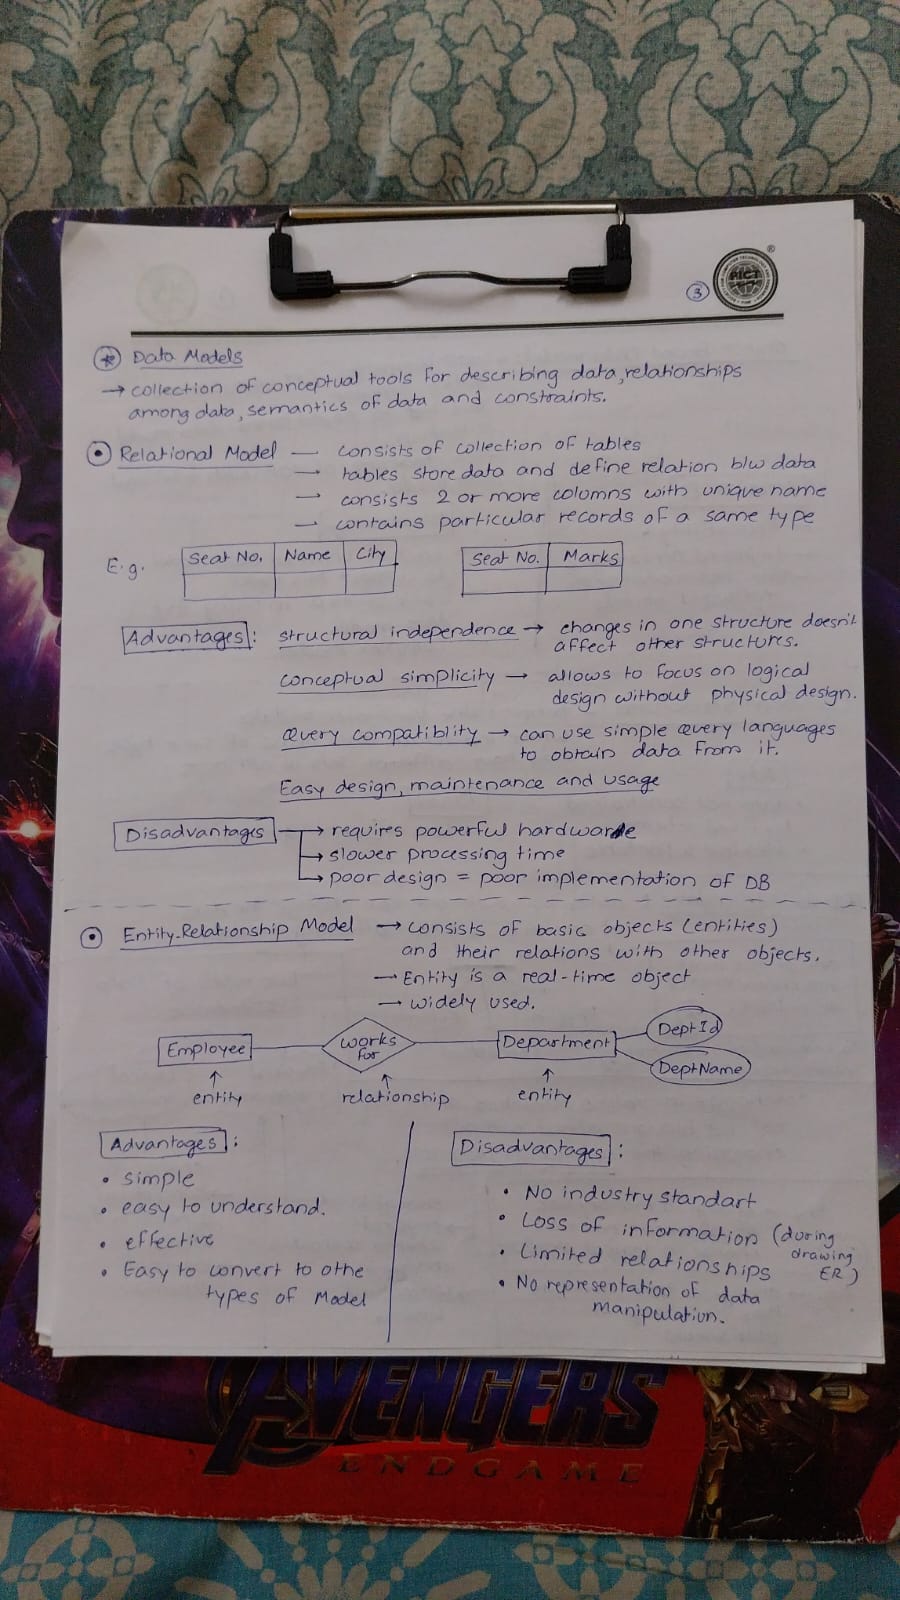 3
PICT
®
Data Models
→ collection of conceptual tools for describing data, relationships
among data, semantics of data and constraints.
Relational Model — consists of collection of tables
— tables store data and define relation b/w data
— consists 2 or more columns with unique name
— contains particular records of a same type
E.g.
Seat No. Name City
Seat No. Marks
Advantages: structural independence → changes in one structure doesn't
affect other structures.
conceptual simplicity → allows to focus on logical
design without physical design.
Query compatiblity → can use simple query languages
to obtain data from it.
Easy design, maintenance and usage
Disadvantages → requires powerful hardware
→ slower processing time
→ poor design = poor implementation of DB
Entity-Relationship Model → consists of basic objects (entities)
and their relations with other objects.
→ Entity is a real-time object
→ widely used.
Employee
works
for
Department
DeptId
DeptName
↑ ↑ ↑
entity relationship entity
Advantages:
• simple
• easy to understand.
• effective
• Easy to convert to othe
types of Model
Disadvantages:
• No industry standart
• Loss of information (during
drawing
ER)
• Limited relationships
• No representation of data
manipulation.
AVENGERS
ENDGAME